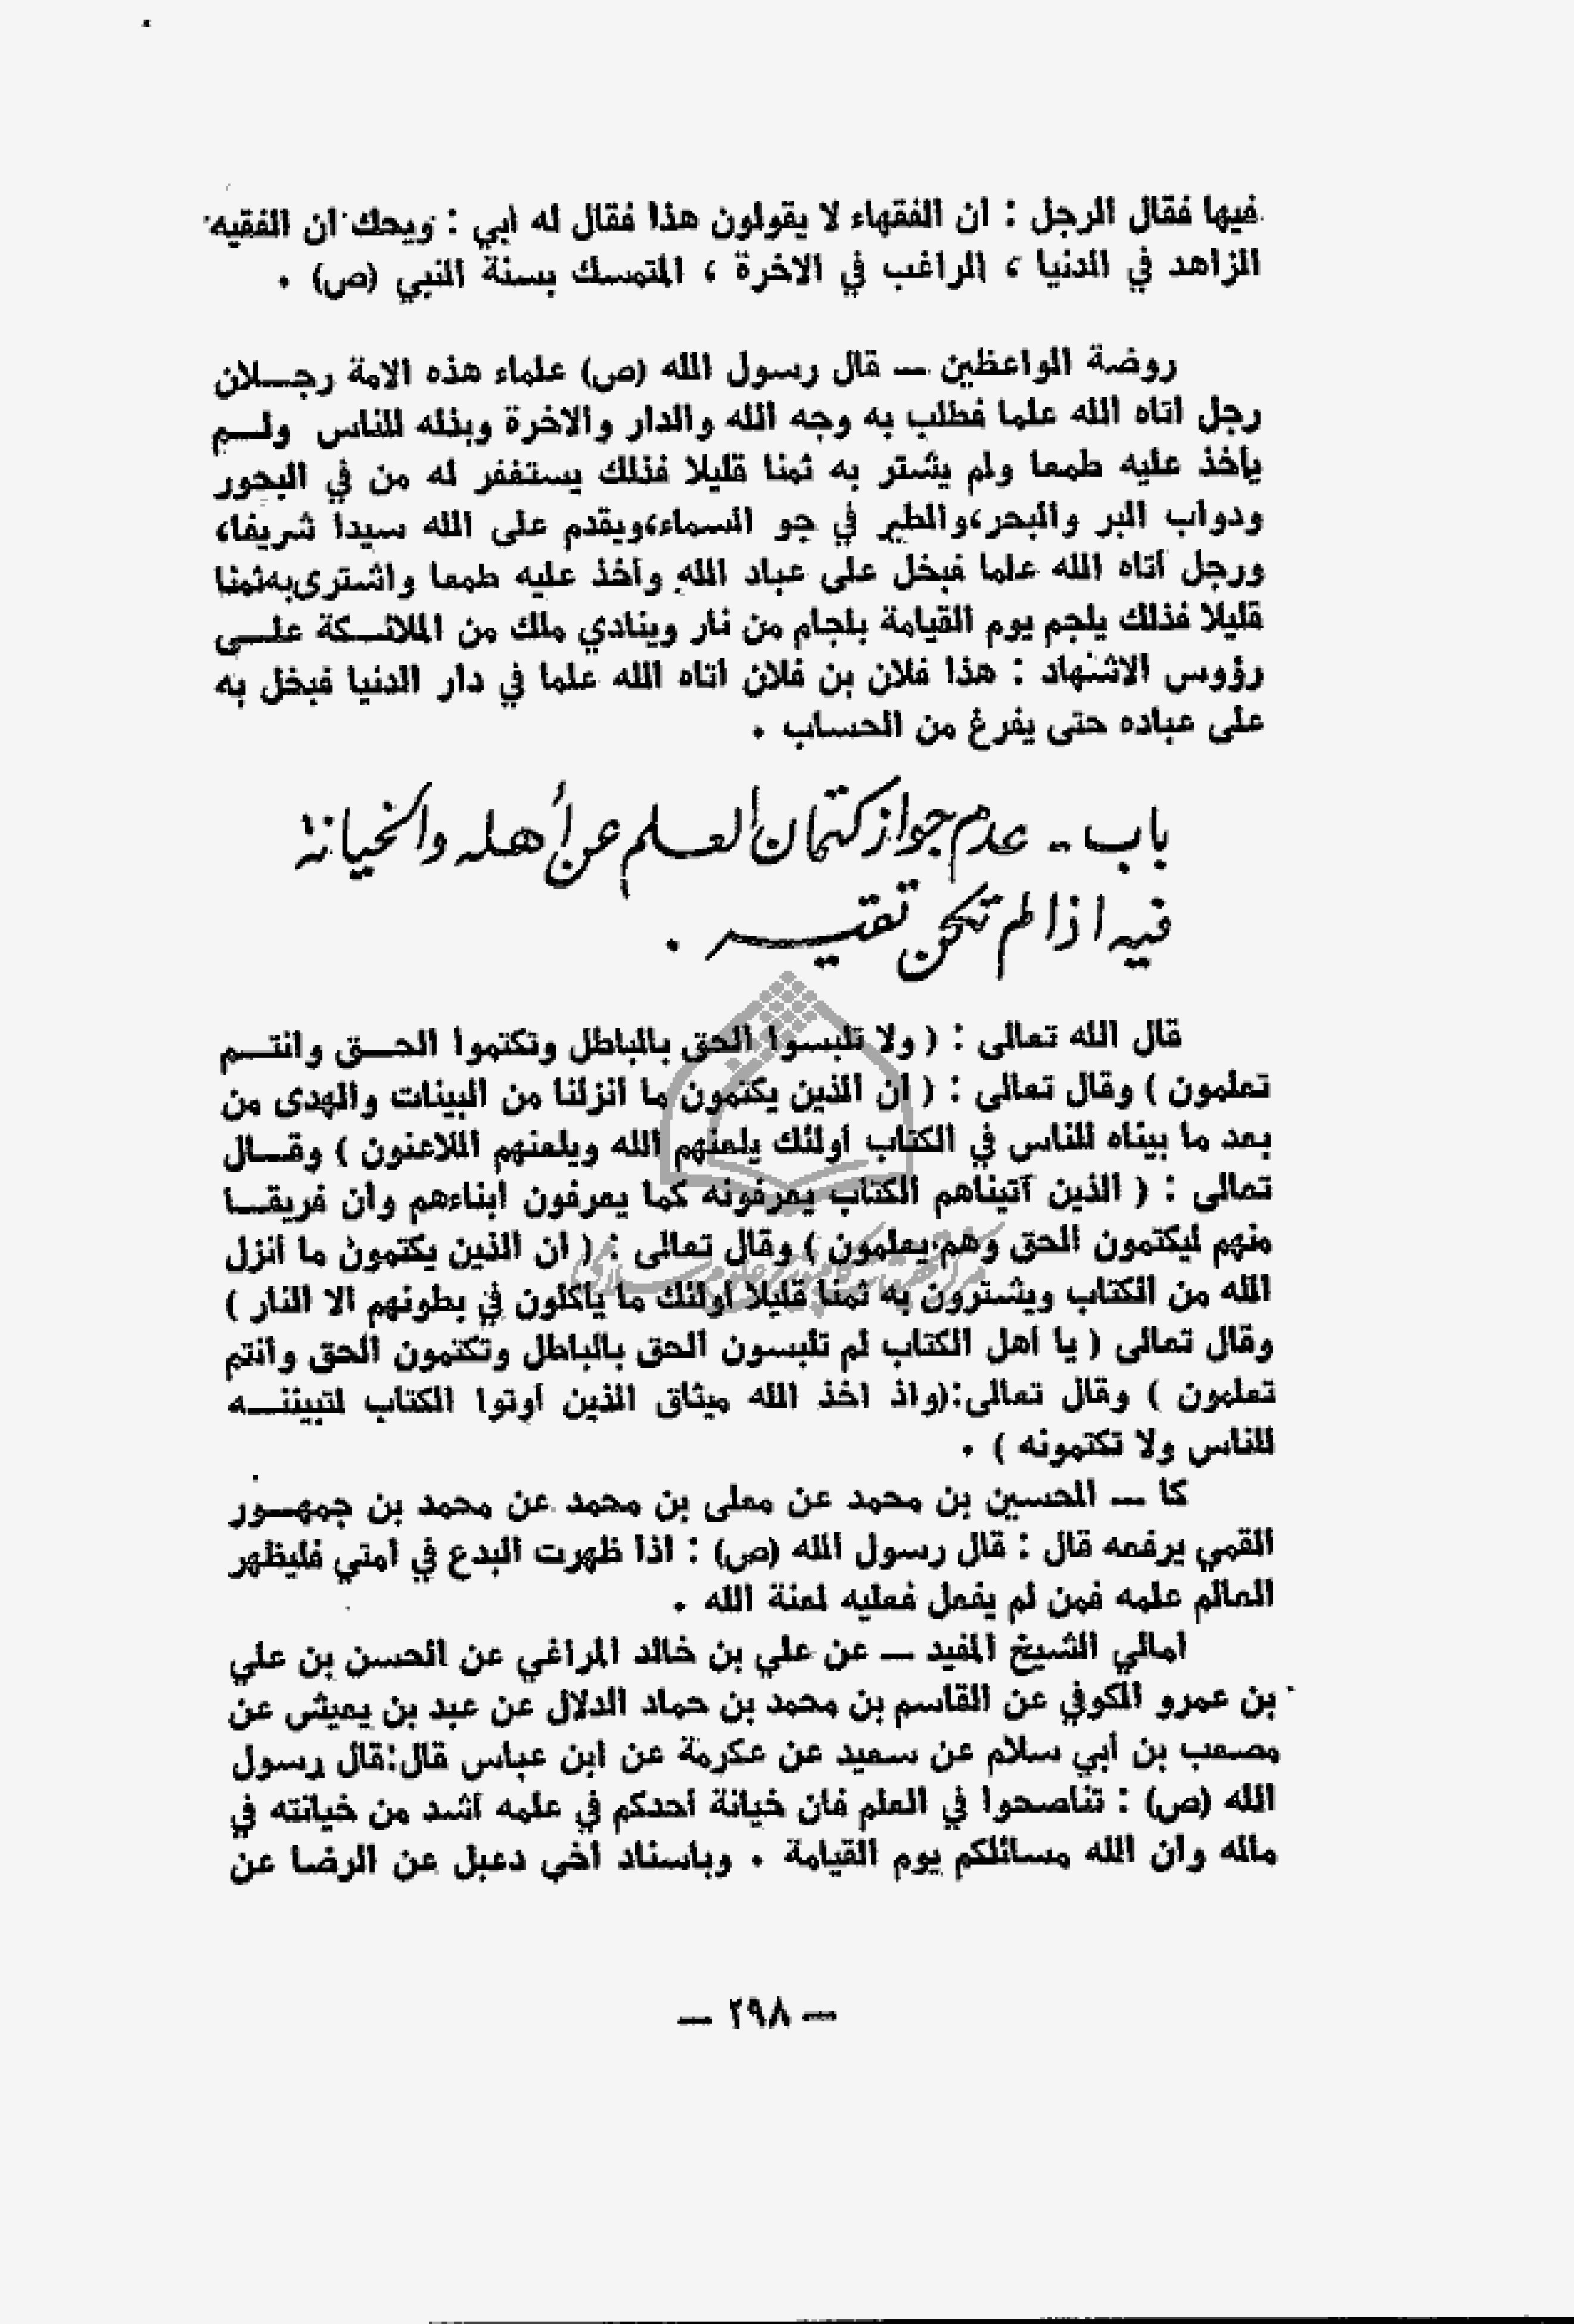 فيها فقال الرجل : ان الفقهاء لا يقولون هذا فقال له أبي : ويحك ان الفقيه
الزاهد في الدنيا ، الراغب في الاخرة ، المتمسك بسنة النبي (ص) .
روضة الواعظين — قال رسول الله (ص) علماء هذه الامة رجـــلان
رجل اتاه الله علما فطلب به وجه الله والدار والاخرة وبذله للناس ولـــم
يأخذ عليه طمعا ولم يشتر به ثمنا قليلا فذلك يستغفر له من في البحور
ودواب البر والبحر،والطير في جو السماء،ويقدم على الله سيدا شريفا،
ورجل أتاه الله علما فبخل على عباد الله وأخذ عليه طمعا واشترى به ثمنا
قليلا فذلك يلجم يوم القيامة بلجام من نار وينادي ملك من الملائــكة علـــى
رؤوس الاشهاد : هذا فلان بن فلان اتاه الله علما في دار الدنيا فبخل به
على عباده حتى يفرغ من الحساب .
باب - عدم جواز كتمان العلم عن أهله والخيانة
فيه اذا لم تكن تقيـــه .
قال الله تعالى : ( ولا تلبسوا الحق بالباطل وتكتموا الحـــق وانتـــم
تعلمون ) وقال تعالى : ( ان الذين يكتمون ما أنزلنا من البينات والهدى من
بعد ما بيناه للناس في الكتاب أولئك يلعنهم الله ويلعنهم اللاعنون ) وقـــال
تعالى : ( الذين آتيناهم الكتاب يعرفونه كما يعرفون ابناءهم وان فريقـــا
منهم ليكتمون الحق وهم يعلمون ) وقال تعالى : ( ان الذين يكتمون ما أنزل
الله من الكتاب ويشترون به ثمنا قليلا أولئك ما يأكلون في بطونهم الا النار )
وقال تعالى ( يا أهل الكتاب لم تلبسون الحق بالباطل وتكتمون الحق وأنتم
تعلمون ) وقال تعالى:(واذ اخذ الله ميثاق الذين أوتوا الكتاب لتبيننـــه
للناس ولا تكتمونه ) .
كا — الحسين بن محمد عن معلى بن محمد عن محمد بن جمهـــور
القمي يرفعه قال : قال رسول الله (ص) : اذا ظهرت البدع في أمتي فليظهر
العالم علمه فمن لم يفعل فعليه لعنة الله .
امالي الشيخ المفيد — عن علي بن خالد المراغي عن الحسن بن علي
بن عمرو الكوفي عن القاسم بن محمد بن حماد الدلال عن عبد بن يعيش عن
مصعب بن أبي سلام عن سعيد عن عكرمة عن ابن عباس قال:قال رسول
الله (ص) : تناصحوا في العلم فان خيانة أحدكم في علمه أشد من خيانته في
ماله وان الله مسائلكم يوم القيامة . وباسناد أخي دعبل عن الرضا عن
— ٢٩٨ —